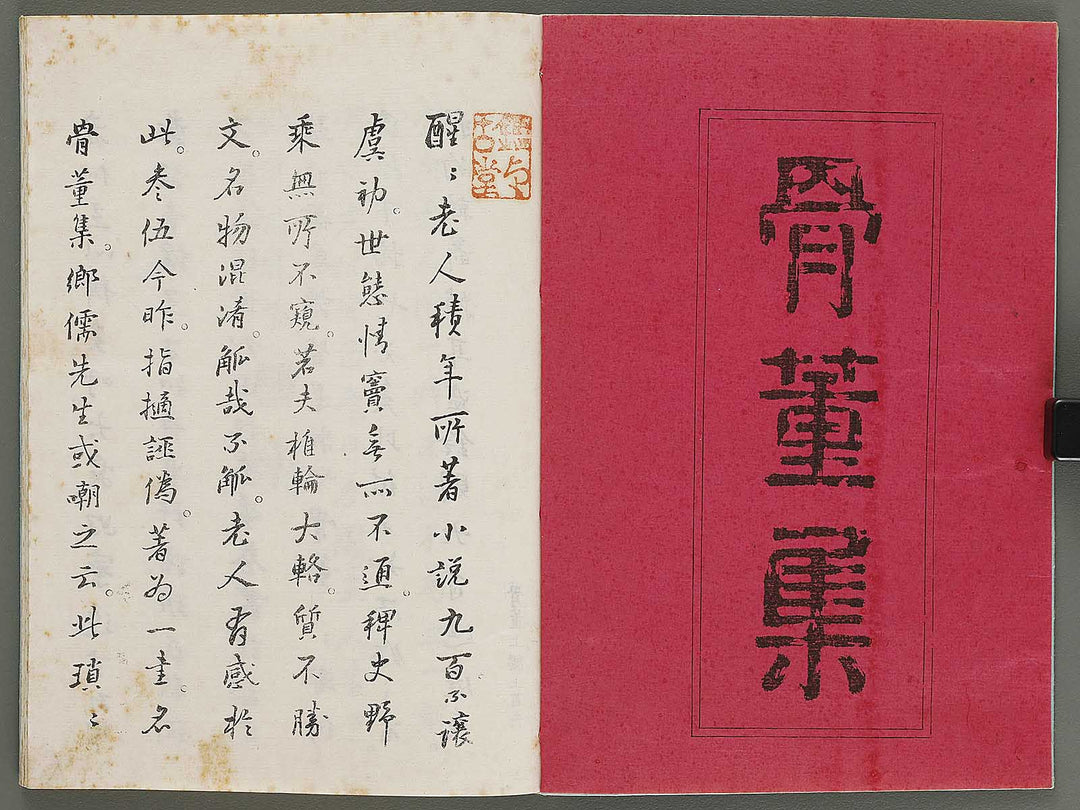 骨董集
醒〻老人積年所著小説九百不譲
虞初。世態情竇無所不通。稗史野
乘無所不窺。若夫椎輪大輅。質不勝
文。名物混淆。觚哉不觚。老人有感於
此。参伍今昨。指擿誣偽。著為一書。名
骨董集。鄉儒先生或嘲之云。此瑣〻